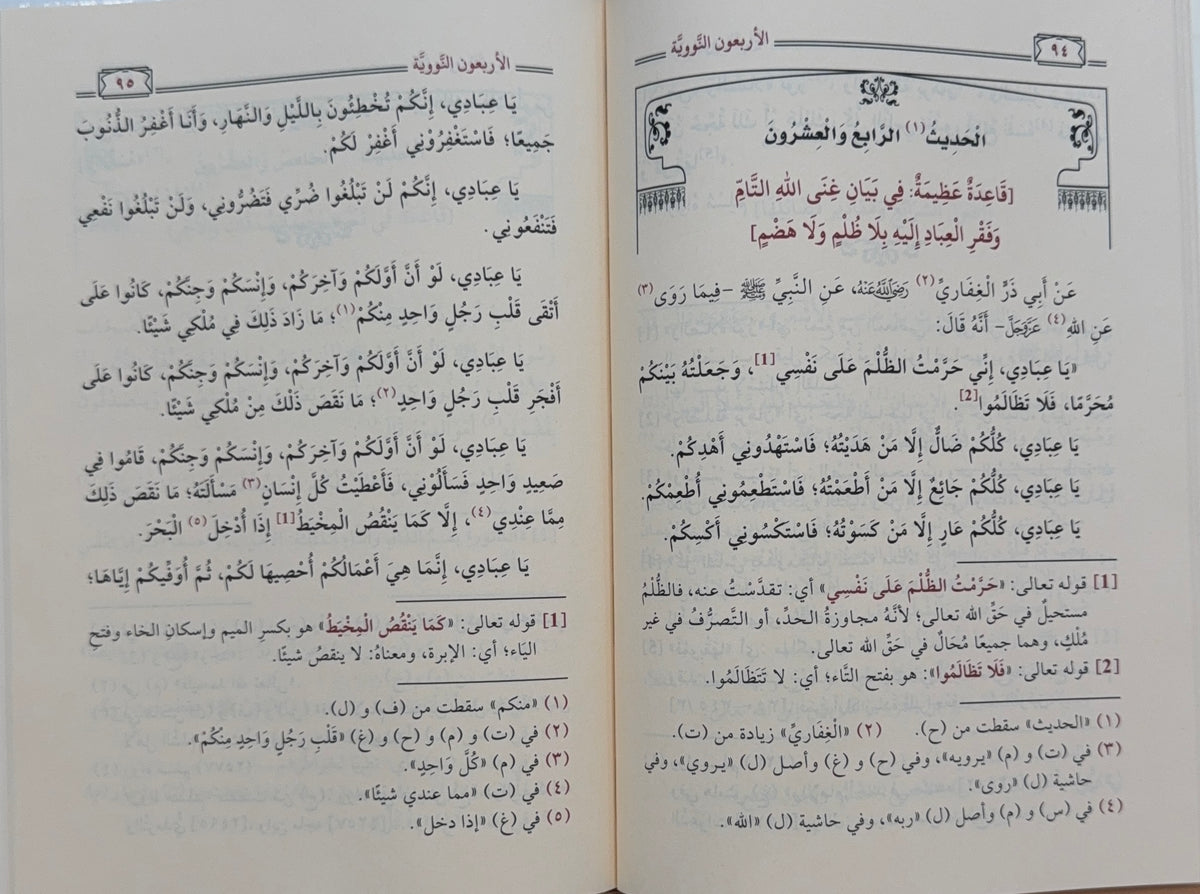 الأربعون النَّوويَّة
٩٤
الْحَدِيثُ (١) الرَّابِعُ وَالْعِشْرُونَ
[قَاعِدَةٌ عَظِيمَةٌ: فِي بَيَانِ غِنَى اللهِ التَّامِّ
وَفَقْرِ الْعِبَادِ إِلَيْهِ بِلَا ظُلْمٍ وَلَا هَضْمٍ]
عَنْ أَبِي ذَرٍّ الْغِفَارِيِّ (٢) رَضِيَ اللهُ عَنْهُ، عَنِ النَّبِيِّ ﷺ -فِيمَا رَوَى (٣)
عَنِ اللهِ (٤) عَزَّ وَجَلَّ- أَنَّهُ قَالَ:
«يَا عِبَادِي، إِنِّي حَرَّمْتُ الظُّلْمَ عَلَى نَفْسِي [1]، وَجَعَلْتُهُ بَيْنَكُمْ
مُحَرَّمًا، فَلَا تَظَالَمُوا [2].
يَا عِبَادِي، كُلُّكُمْ ضَالٌّ إِلَّا مَنْ هَدَيْتُهُ؛ فَاسْتَهْدُونِي أَهْدِكُمْ.
يَا عِبَادِي، كُلُّكُمْ جَائِعٌ إِلَّا مَنْ أَطْعَمْتُهُ؛ فَاسْتَطْعِمُونِي أُطْعِمْكُمْ.
يَا عِبَادِي، كُلُّكُمْ عَارٍ إِلَّا مَنْ كَسَوْتُهُ؛ فَاسْتَكْسُونِي أَكْسِكُمْ.
[1] قوله تعالى: «حَرَّمْتُ الظُّلْمَ عَلَى نَفْسِي» أي: تقدَّسْتُ عنه، فالظُّلْمُ
مستحيلٌ في حَقِّ الله تعالى؛ لأنَّهُ مجاوزةُ الحدِّ، أو التَّصرُّفُ في غير
مُلْكٍ، وهما جميعًا مُحَالٌ في حَقِّ الله تعالى.
[2] قوله تعالى: «فَلَا تَظَالَمُوا»: هو بفتح التَّاء؛ أي: لا تَتَظَالَمُوا.
(١) «الحديث» سقطت من (ح). (٢) «الْغِفَارِيِّ» زيادة من (ت).
(٣) في (ت) و (م) «يرويه»، وفي (ح) و (غ) وأصل (ل) «يروي»، وفي
حاشية (ل) «روى».
(٤) في (س) و (م) وأصل (ل) «ربه»، وفي حاشية (ل) «الله».
الأربعون النَّوويَّة
٩٥
يَا عِبَادِي، إِنَّكُمْ تُخْطِئُونَ بِاللَّيْلِ وَالنَّهَارِ، وَأَنَا أَغْفِرُ الذُّنُوبَ
جَمِيعًا؛ فَاسْتَغْفِرُونِي أَغْفِرْ لَكُمْ.
يَا عِبَادِي، إِنَّكُمْ لَنْ تَبْلُغُوا ضُرِّي فَتَضُرُّونِي، وَلَنْ تَبْلُغُوا نَفْعِي
فَتَنْفَعُونِي.
يَا عِبَادِي، لَوْ أَنَّ أَوَّلَكُمْ وَآخِرَكُمْ، وَإِنْسَكُمْ وَجِنَّكُمْ، كَانُوا عَلَى
أَتْقَى قَلْبِ رَجُلٍ وَاحِدٍ مِنْكُمْ (١)؛ مَا زَادَ ذَلِكَ فِي مُلْكِي شَيْئًا.
يَا عِبَادِي، لَوْ أَنَّ أَوَّلَكُمْ وَآخِرَكُمْ، وَإِنْسَكُمْ وَجِنَّكُمْ، كَانُوا عَلَى
أَفْجَرِ قَلْبِ رَجُلٍ وَاحِدٍ (٢)؛ مَا نَقَصَ ذَلِكَ مِنْ مُلْكِي شَيْئًا.
يَا عِبَادِي، لَوْ أَنَّ أَوَّلَكُمْ وَآخِرَكُمْ، وَإِنْسَكُمْ وَجِنَّكُمْ، قَامُوا فِي
صَعِيدٍ وَاحِدٍ فَسَأَلُونِي، فَأَعْطَيْتُ كُلَّ إِنْسَانٍ (٣) مَسْأَلَتَهُ؛ مَا نَقَصَ ذَلِكَ
مِمَّا عِنْدِي (٤)، إِلَّا كَمَا يَنْقُصُ الْمِخْيَطُ [1] إِذَا أُدْخِلَ (٥) الْبَحْرَ.
يَا عِبَادِي، إِنَّمَا هِيَ أَعْمَالُكُمْ أُحْصِيهَا لَكُمْ، ثُمَّ أُوَفِّيكُمْ إِيَّاهَا؛
[1] قوله تعالى: «كَمَا يَنْقُصُ الْمِخْيَطُ» هو بكسرِ الميم وإسكانِ الخاء وفتحِ
اليَاء؛ أي: الإبرة، ومعناهُ: لا ينقصُ شيئًا.
(١) «منكم» سقطت من (ف) و (ل).
(٢) في (ت) و (م) و (ح) و (غ) «قَلْبِ رَجُلٍ وَاحِدٍ مِنْكُمْ».
(٣) في (م) «كُلَّ وَاحِدٍ».
(٤) في (ت) «مما عندي شيئًا».
(٥) في (غ) «إذا دخل».